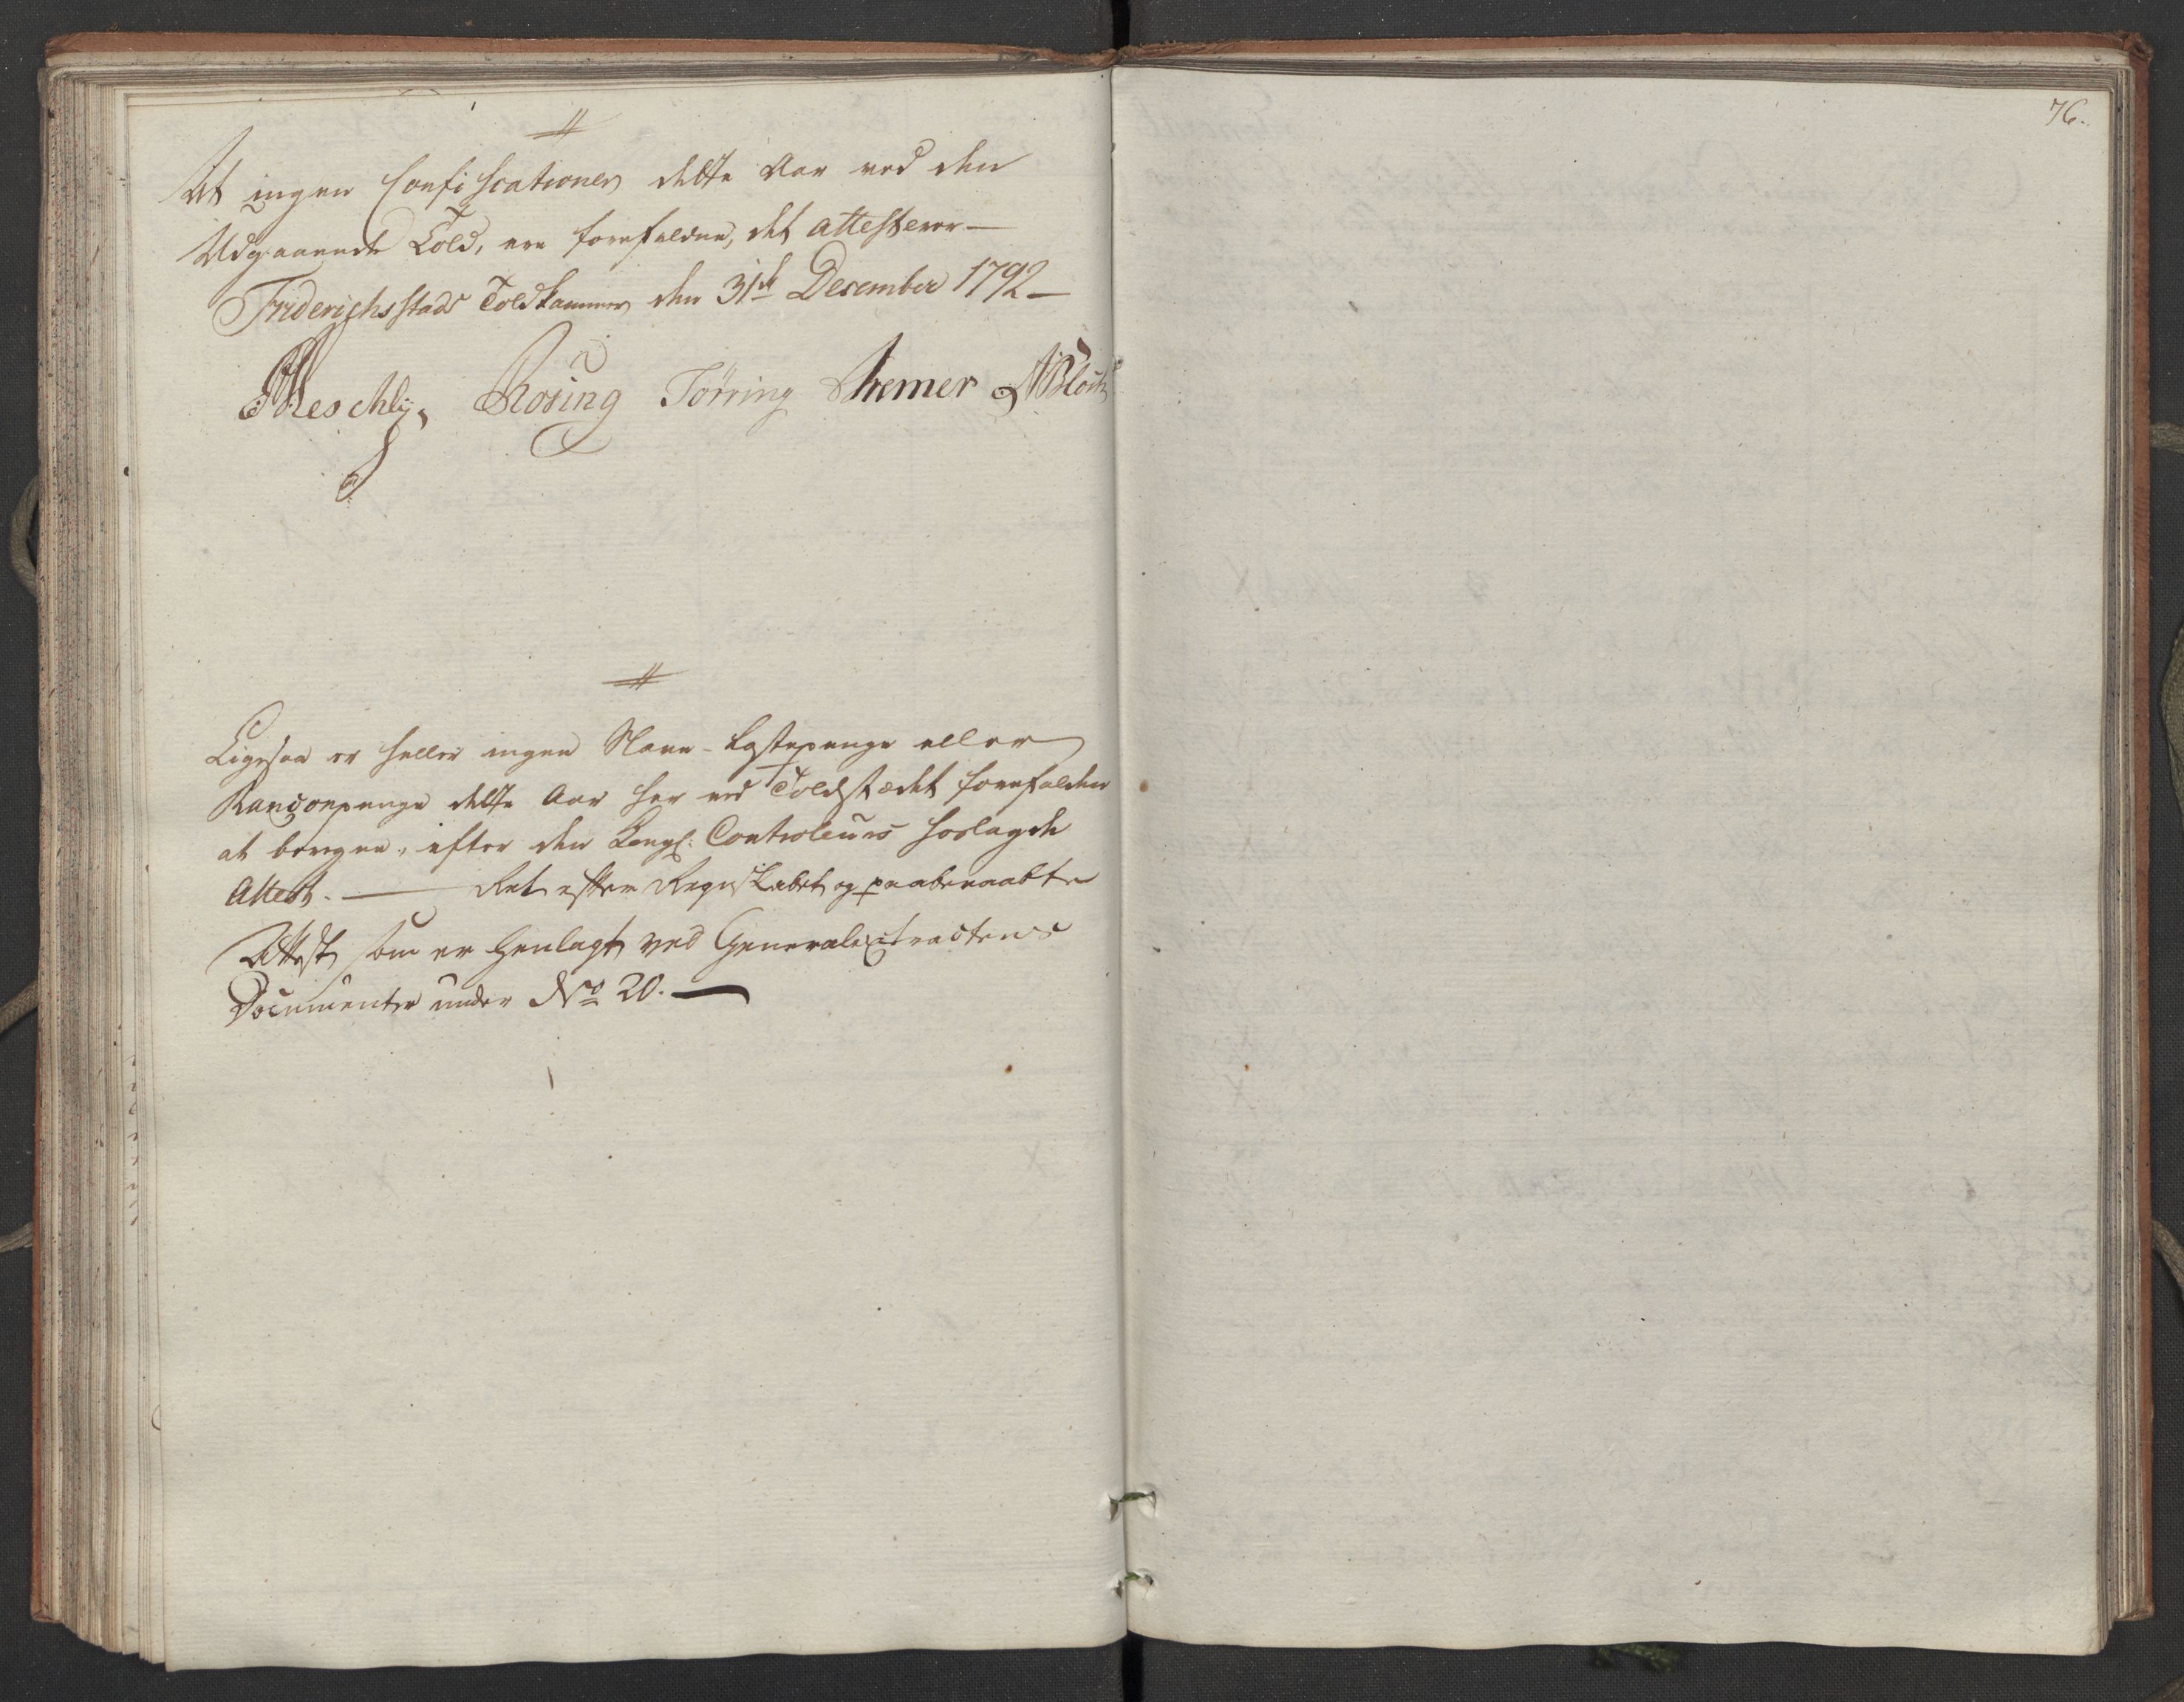 At ingen Confiscationer dette Aar ved den
Udgaaende Told, ere forefaldne, det attesterer —
Friderichsstads Toldkammer den 31te December 1792 —
Rosing Tørring Kremer Bloch
Ligesaa er heller ingen Slave-Casse penge eller
Rançonpenge dette Aar her ved Toldstædet forefalden
at beregne, efter den Kongl: Controleurs hoslagde
Attest. — Ret efter Regnskabet og paaberaabte
Attest som er henlagt ved Generalextractens
Documenter under No 20. —
76.